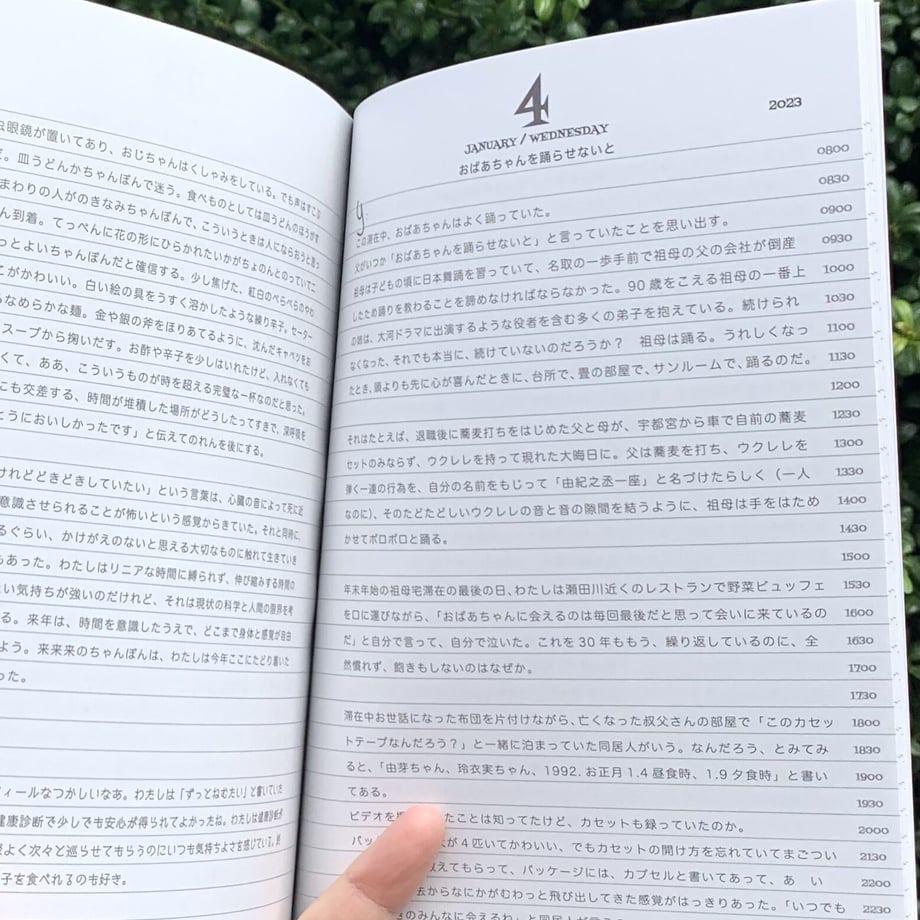 虫眼鏡が置いてあり、おじちゃんはくしゃみをしている。でも声はすこ
。皿うどんかちゃんぽんで迷う。食べものとしては皿うどんのほうがす
まわりの人がのきなみちゃんぽんで、こういうときは人にならおうと思っ
ん到着。てっぺんに花の形にひらかれたいかがちょのんとのっていてこ
っとよいちゃんぽんだと確信する。少し焦げた、紅白のぺらぺらのやわ
こがかわいい。白い絵の具をうすく溶かしたような練り辛子、セーター
らなめらかな麺。金や銀の斧をほりあてるように、沈んだキャベツをお
スープから掬いだす。お酢や辛子を少しはいれたけど、入れなくても
くて、ああ、こういうものが時を超える完璧な一杯なのだと思った。
こも交差する、時間が堆積した場所がどうしたってすきで、深呼吸を
とうにおいしかったです」と伝えてのれんを後にする。
けれどどきどきしていたい」という言葉は、心臓の音によって死に近
意識させられることが怖いという感覚からきていた。それと同時に、
るぐらい、かけがえのないと思える大切なものに触れて生きていき
もあった。わたしはリニアな時間に縛られず、伸び縮みする時間の
い気持ちが強いのだけれど、それは現状の科学と人間の限界を考
る。来年は、時間を意識したうえで、どこまで身体と感覚が自由
よう。来来来のちゃんぽんは、わたしは今年ここにたどり着いた
った。
ィールなつかしいなあ。わたしは「ずっとねむたい」と書いていた
健康診断で少しでも安心が得られてよかったね。わたしは健康診断が
よく次々と巡らせてもらうのにいつも気持ちよさを感じている。
子を食べれるのも好き。
4
2023
JANUARY / WEDNESDAY
おばあちゃんを踊らせないと
0800
y:
0830
この滞在中、おばあちゃんはよく踊っていた。
0900
父がいつか「おばあちゃんを踊らせないと」と言っていたことを思い出す。
0930
祖母は子どもの頃に日本舞踊を習っていて、名取の一歩手前で祖母の父の会社が倒産
1000
したため踊りを教わることを諦めなければならなかった。90歳をこえる祖母の一番上
1030
の姉は、大河ドラマに出演するような役者を含む多くの弟子を抱えている。続けられ
1100
なくなった、それでも本当に、続けていないのだろうか？　祖母は踊る。うれしくなっ
1130
たとき、頭よりも先に心が喜んだときに、台所で、畳の部屋で、サンルームで、踊るのだ。
1200
1230
それはたとえば、退職後に蕎麦打ちをはじめた父と母が、宇都宮から車で自前の蕎麦
1300
セットのみならず、ウクレレを持って現れた大晦日に。父は蕎麦を打ち、ウクレレを
1330
弾く一連の行為を、自分の名前をもじって「由紀之丞一座」と名づけたらしく（一人
1400
なのに）、そのたどたどしいウクレレの音と音の隙間を結うように、祖母は手をはため
1430
かせてポロポロと踊る。
1500
年末年始の祖母宅滞在の最後の日、わたしは瀬田川近くのレストランで野菜ビュッフェ
1530
を口に運びながら、「おばあちゃんに会えるのは毎回最後だと思って会いに来ているの
1600
だ」と自分で言って、自分で泣いた。これを30年ももう、繰り返しているのに、全
1630
然慣れず、飽きもしないのはなぜか。
1700
1730
滞在中お世話になった布団を片付けながら、亡くなった叔父さんの部屋で「このカセッ
1800
トテープなんだろう？」と一緒に泊まっていた同居人がいう。なんだろう、とみてみ
1830
ると、「由芽ちゃん、玲衣実ちゃん、1992. お正月 1.4 昼食時、1.9 夕食時」と書い
1900
てある。
1930
ビデオを
たことは知ってたけど、カセットも録っていたのか。
2000
パッ
が4匹いてかわいい、でもカセットの開け方を忘れていてまごつい
2130
えてもらって、パッケージには、カプセルと書いてあって、あ　い
2200
去からなにかがむわっと飛び出してきた感覚がはっきりあった。「いつでも
2230
きのみんなに会えるね」と同居人が言う